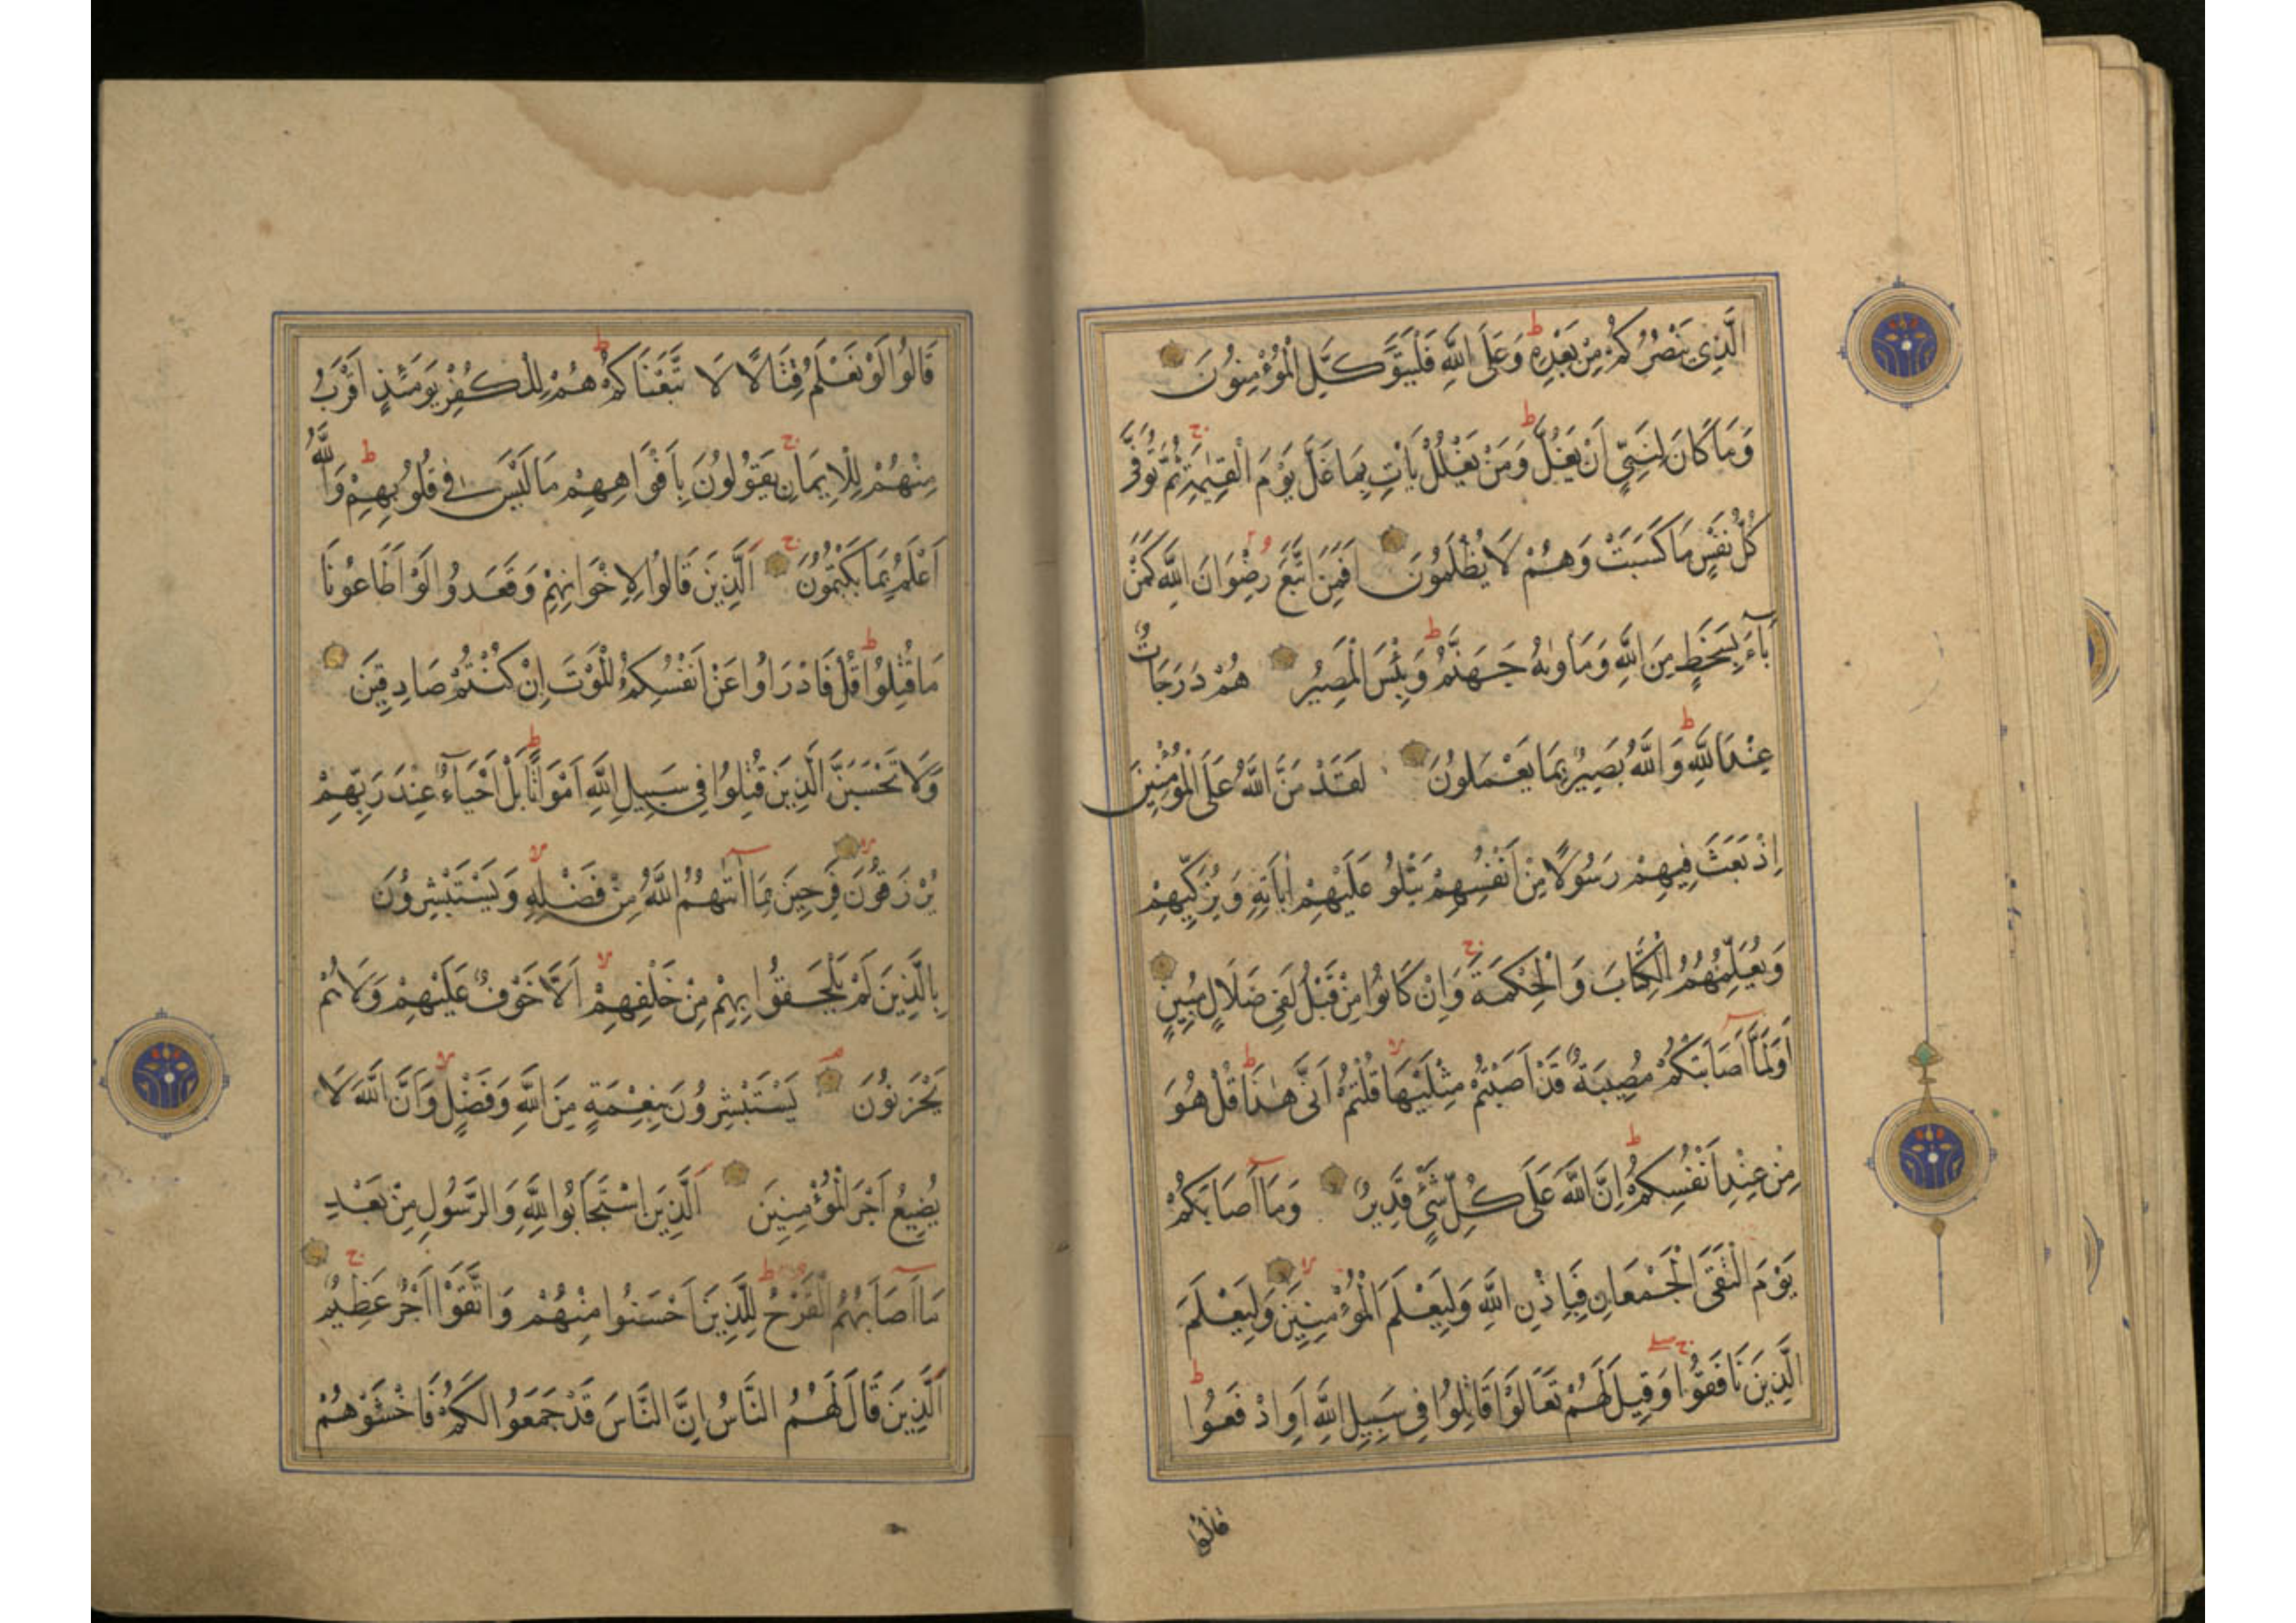 الَّذِي يَنْصُرُكُمْ مِنْ بَعْدِهِ ط وَعَلَى اللَّهِ فَلْيَتَوَكَّلِ الْمُؤْمِنُونَ
وَمَا كَانَ لِنَبِيٍّ أَنْ يَغُلَّ ط وَمَنْ يَغْلُلْ يَأْتِ بِمَا غَلَّ يَوْمَ الْقِيٰمَةِ ج ثُمَّ تُوَفَّى
كُلُّ نَفْسٍ مَا كَسَبَتْ وَهُمْ لَا يُظْلَمُونَ اَفَمَنِ اتَّبَعَ رِضْوَانَ اللَّهِ كَمَنْ
بَآءَ بِسَخَطٍ مِنَ اللَّهِ وَمَأْوٰيهُ جَهَنَّمُ ط وَبِئْسَ الْمَصِيرُ هُمْ دَرَجَاتٌ
عِنْدَ اللَّهِ ط وَاللَّهُ بَصِيرٌ بِمَا يَعْمَلُونَ لَقَدْ مَنَّ اللَّهُ عَلَى الْمُؤْمِنِينَ
اِذْ بَعَثَ فِيهِمْ رَسُولًا مِنْ اَنْفُسِهِمْ يَتْلُوا عَلَيْهِمْ اٰيَاتِهِ وَيُزَكِّيهِمْ
وَيُعَلِّمُهُمُ الْكِتَابَ وَالْحِكْمَةَ ج وَاِنْ كَانُوا مِنْ قَبْلُ لَفِي ضَلَالٍ مُبِينٍ
اَوَلَمَّا اَصَابَتْكُمْ مُصِيبَةٌ قَدْ اَصَبْتُمْ مِثْلَيْهَا لا قُلْتُمْ اَنَّى هٰذَا ط قُلْ هُوَ
مِنْ عِنْدِ اَنْفُسِكُمْ ط اِنَّ اللَّهَ عَلَى كُلِّ شَيْءٍ قَدِيرٌ وَمَا اَصَابَكُمْ
يَوْمَ الْتَقَى الْجَمْعَانِ فَبِاِذْنِ اللَّهِ وَلِيَعْلَمَ الْمُؤْمِنِينَ لا وَلِيَعْلَمَ
الَّذِينَ نَافَقُوا ج صلے وَقِيلَ لَهُمْ تَعَالَوْا قَاتِلُوا فِي سَبِيلِ اللَّهِ اَوِ ادْفَعُوا ط
قالوا
قَالُوا لَوْ نَعْلَمُ قِتَالًا لَا تَّبَعْنَاكُمْ ط هُمْ لِلْكُفْرِ يَوْمَئِذٍ اَقْرَبُ
مِنْهُمْ لِلْاِيمَانِ ج يَقُولُونَ بِاَفْوَاهِهِمْ مَا لَيْسَ فِي قُلُوبِهِمْ ط وَاللَّهُ
اَعْلَمُ بِمَا يَكْتُمُونَ ج اَلَّذِينَ قَالُوا لِاِخْوَانِهِمْ وَقَعَدُوا لَوْ اَطَاعُونَا
مَا قُتِلُوا ط قُلْ فَادْرَاُوا عَنْ اَنْفُسِكُمُ الْمَوْتَ اِنْ كُنْتُمْ صَادِقِينَ
وَلَا تَحْسَبَنَّ الَّذِينَ قُتِلُوا فِي سَبِيلِ اللَّهِ اَمْوَاتًا ط بَلْ اَحْيَآءٌ عِنْدَ رَبِّهِمْ
يُرْزَقُونَ لا فَرِحِينَ بِمَا اٰتٰيهُمُ اللَّهُ مِنْ فَضْلِهِ لا وَيَسْتَبْشِرُونَ
بِالَّذِينَ لَمْ يَلْحَقُوا بِهِمْ مِنْ خَلْفِهِمْ لا اَلَّا خَوْفٌ عَلَيْهِمْ وَلَا هُمْ
يَحْزَنُونَ يَسْتَبْشِرُونَ بِنِعْمَةٍ مِنَ اللَّهِ وَفَضْلٍ لا وَاَنَّ اللَّهَ لَا
يُضِيعُ اَجْرَ الْمُؤْمِنِينَ اَلَّذِينَ اسْتَجَابُوا لِلَّهِ وَالرَّسُولِ مِنْ بَعْدِ
مَا اَصَابَهُمُ الْقَرْحُ ط لِلَّذِينَ اَحْسَنُوا مِنْهُمْ وَاتَّقَوْا اَجْرٌ عَظِيمٌ ج
اَلَّذِينَ قَالَ لَهُمُ النَّاسُ اِنَّ النَّاسَ قَدْ جَمَعُوا لَكُمْ فَاخْشَوْهُمْ